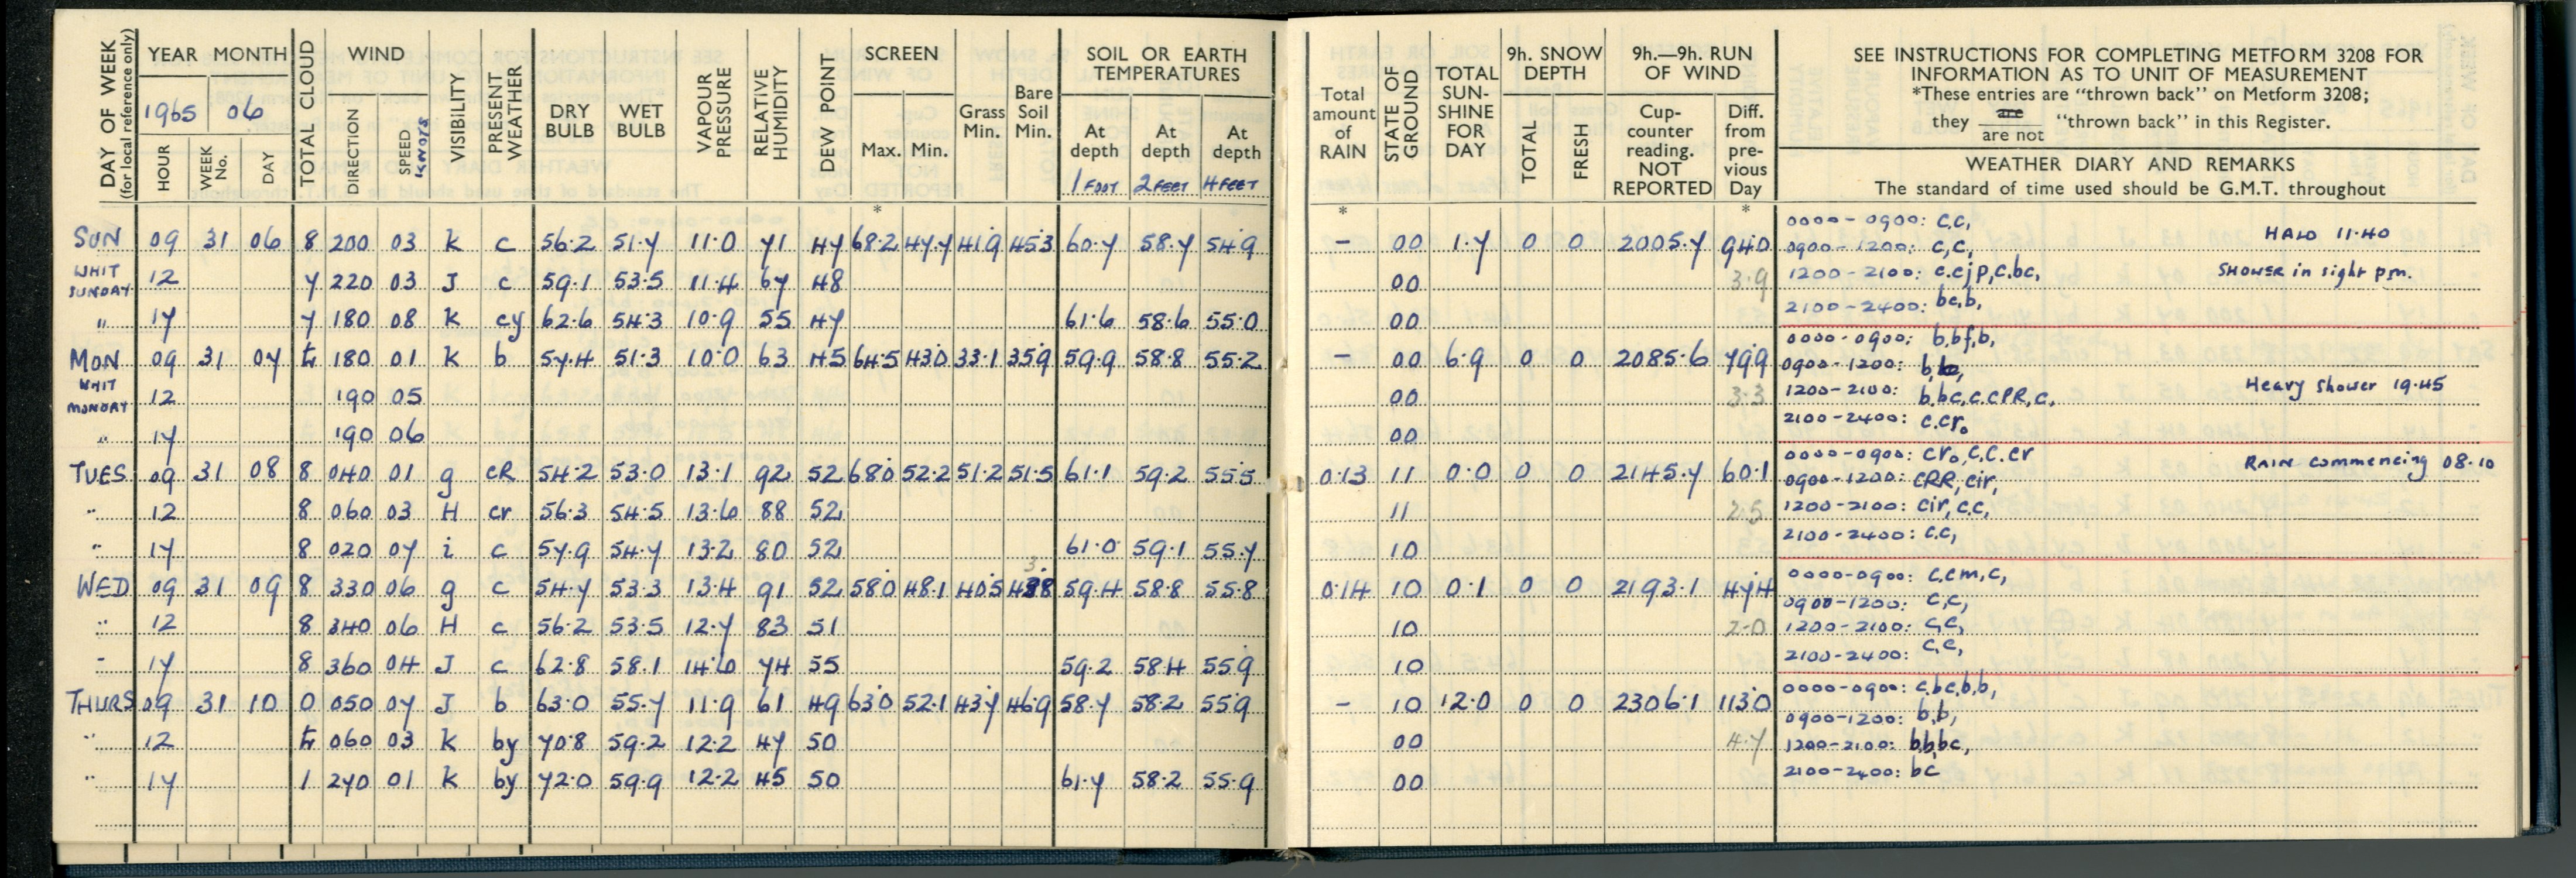 DAY OF WEEK (for local reference only) YEAR MONTH TOTAL CLOUD WIND VISIBILITY PRESENT WEATHER DRY BULB WET BULB VAPOUR PRESSURE RELATIVE HUMIDITY DEW POINT SCREEN Grass Min. Bare Soil Min. SOIL OR EARTH TEMPERATURES
1965 06
HOUR WEEK No. DAY DIRECTION SPEED KNOTS Max. Min. At depth At depth At depth
1 FOOT 2 FEET 4 FEET
*
SUN 09 31 06 8 200 03 k c 56.2 51.7 11.0 71 47 68.2 47.7 41.9 45.3 60.7 58.7 54.9
WHIT SUNDAY 12 7 220 03 J c 59.1 53.5 11.4 67 48
" 17 7 180 08 k cy 62.6 54.3 10.9 55 47 61.6 58.6 55.0
MON 09 31 07 180 01 k b 57.4 51.3 10.0 63 45 64.5 43.0 33.1 35.9 59.9 58.8 55.2
WHIT MONDAY 12 190 05
" 17 190 06
TUES 09 31 08 8 040 01 g cR 54.2 53.0 13.1 92 52 68.0 52.2 51.2 51.5 61.1 59.2 55.5
" 12 8 060 03 H cr 56.3 54.5 13.6 88 52
" 17 8 020 07 i c 57.9 54.7 13.2 80 52 61.0 59.1 55.7
WED 09 31 09 8 330 06 g c 54.7 53.3 13.4 91 52 58.0 48.1 40.5 59.4 58.8 55.8
" 12 8 340 06 H c 56.2 53.5 12.7 83 51
" 17 8 360 04 J c 62.8 58.1 14.0 74 55 59.2 58.4 55.9
THURS 09 31 10 0 050 07 J b 63.0 55.7 11.9 61 49 63.0 52.1 43.7 46.9 58.7 58.2 55.9
" 12 060 03 k by 70.8 59.2 12.2 47 50
" 17 1 270 01 k by 72.0 59.9 12.2 45 50 61.7 58.2 55.9
Total amount of RAIN STATE OF GROUND TOTAL SUN-SHINE FOR DAY 9h. SNOW DEPTH 9h.—9h. RUN OF WIND
TOTAL FRESH Cup-counter reading. NOT REPORTED Diff. from pre-vious Day
SEE INSTRUCTIONS FOR COMPLETING METFORM 3208 FOR
INFORMATION AS TO UNIT OF MEASUREMENT
*These entries are "thrown back" on Metform 3208;
they are / are not "thrown back" in this Register.
WEATHER DIARY AND REMARKS
The standard of time used should be G.M.T. throughout
* *
0000-0900: c,c,
– 00 1.7 0 0 2005.7 94.0 0900-1200: c,c, HALO 11.40
00 3.9 1200-2100: c.cjp,c.bc, SHOWER in sight p.m.
00 2100-2400: bc,b,
0000-0900: b,bf,b,
– 00 6.9 0 0 2085.6 79.9 0900-1200: b,
00 3.3 1200-2100: b,bc,c.cPR,c, Heavy shower 19.45
00 2100-2400: c.cr₀
0000-0900: cr₀,c.c.cr RAIN commencing 08.10
0.13 11 0.0 0 0 2145.7 60.1 0900-1200: cRR,cir,
11 2.5 1200-2100: cir,c.c,
10 2100-2400: c.c,
0000-0900: c.cm,c,
0.14 10 0.1 0 0 2193.1 47.4 0900-1200: c,c,
10 2.0 1200-2100: c,c,
10 2100-2400: c,c,
0000-0900: c,bc,b,b,
– 10 12.0 0 0 2306.1 113.0 0900-1200: b,b,
00 4.7 1200-2100: b,b,bc,
00 2100-2400: bc